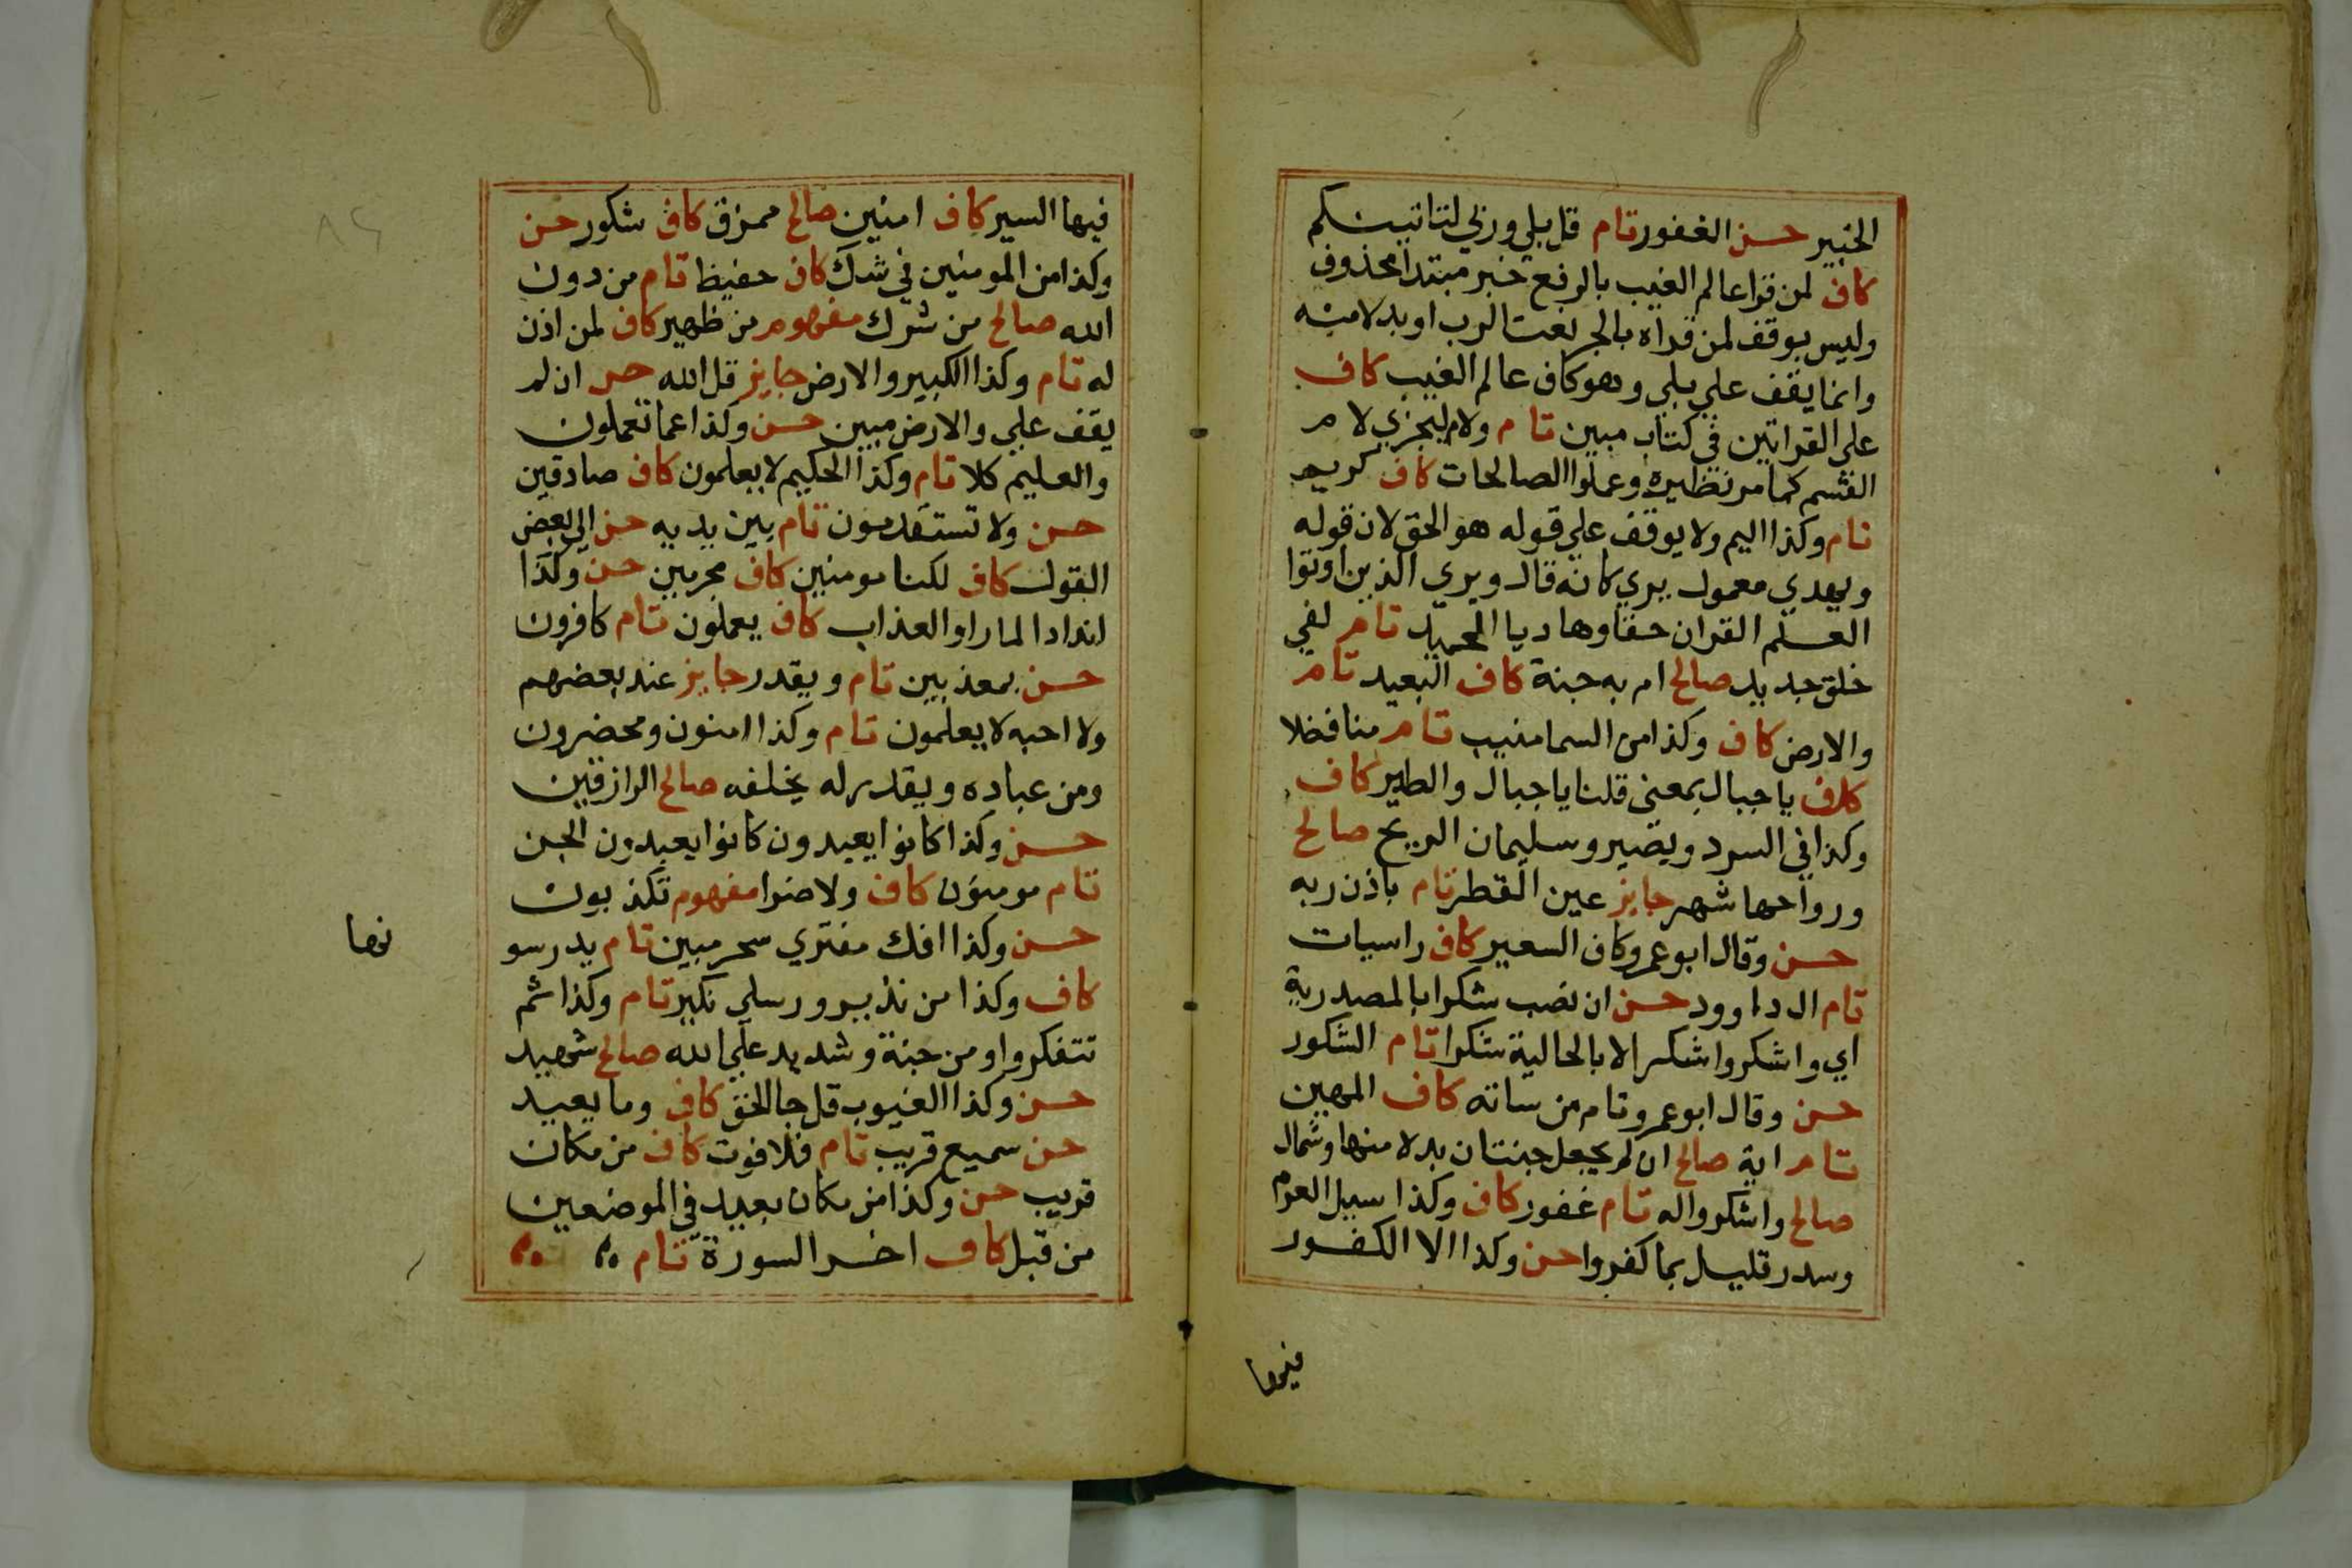 الخبير حسن الغفور تام قل بلي وربي لتاتينكم
كاف لمن قرا عالم الغيب بالرفع خبر مبتدا محذوف
وليس بوقف لمن قراه بالجر نعت الرب او بدلا منه
وانما يقف علي بلي وهو كاف عالم الغيب كاف
علي القراتين في كتاب مبين تام ولام ليجزي لام
القسم كما مر نظيره وعملوا الصالحات كاف كريم
تام وكذا اليم ولا يوقف علي قوله هو الحق لان قوله
ويهدي معمول يري كانه قال ويري الذين اوتوا
العلم القران حقا وهاديا الحميد تام لفي
خلق جديد صالح ام به جنة كاف البعيد تام
والارض كاف وكذا من السما منيب تام منا فضلا
كاف يا جبال بمعني قلنا يا جبال والطير كاف
وكذا في السرد وبصير وسليمان الريح صالح
ورواحها شهر جايز عين القطر تام باذن ربه
حسن وقال ابو عمرو كاف السعير كاف راسيات
تام ال داوود حسن ان نصب شكرا بالمصدرية
اي واشكروا شكرا لا بالحالية شكرا تام الشكور
حسن وقال ابو عمرو تام من ساته كاف المهين
تام اية صالح ان لم يجعل جنتان بدلا منها وشمال
صالح واشكروا له تام غفور كاف وكذا سيل العرم
وسدر قليل بما كفروا حسن وكذا الا الكفور
فيها
فيها السير كاف امنين صالح ممزق كاف شكور حسن
وكذا من المومنين في شك كاف حفيظ تام من دون
الله صالح من شرك مفهوم من ظهير كاف لمن اذن
له تام وكذا الكبير والارض جايز قل الله حسن ان لم
يقف علي والارض مبين حسن وكذا عما تعملون
والعليم كلا تام وكذا الحكيم لا يعلمون كاف صادقين
حسن ولا تستقدمون تام بين يديه حسن الي بعض
القول كاف لكنا مومنين كاف مجرمين حسن وكذا
اندادا لما راوا العذاب كاف يعملون تام كافرون
حسن بمعذبين تام ويقدر جايز عند بعضهم
ولا احبه لا يعلمون تام وكذا امنون ومحضرون
ومن عباده ويقدر له يخلفه صالح الرازقين
حسن وكذا كانوا يعبدون كانوا يعبدون الجن
تام مومنون كاف ولا ضرا مفهوم تكذبون
حسن وكذا افك مفتري سحر مبين تام يدرسو
نها
كاف وكذا من نذير ورسلي نكير تام وكذا ثم
تتفكروا ومن جنة وشديد علي الله صالح شهيد
حسن وكذا الغيوب قل جا الحق كاف وما يعيد
حسن سميع قريب تام فلا فوت كاف من مكان
قريب حسن وكذا من مكان بعيد في الموضعين
من قبل كاف اخر السورة تام